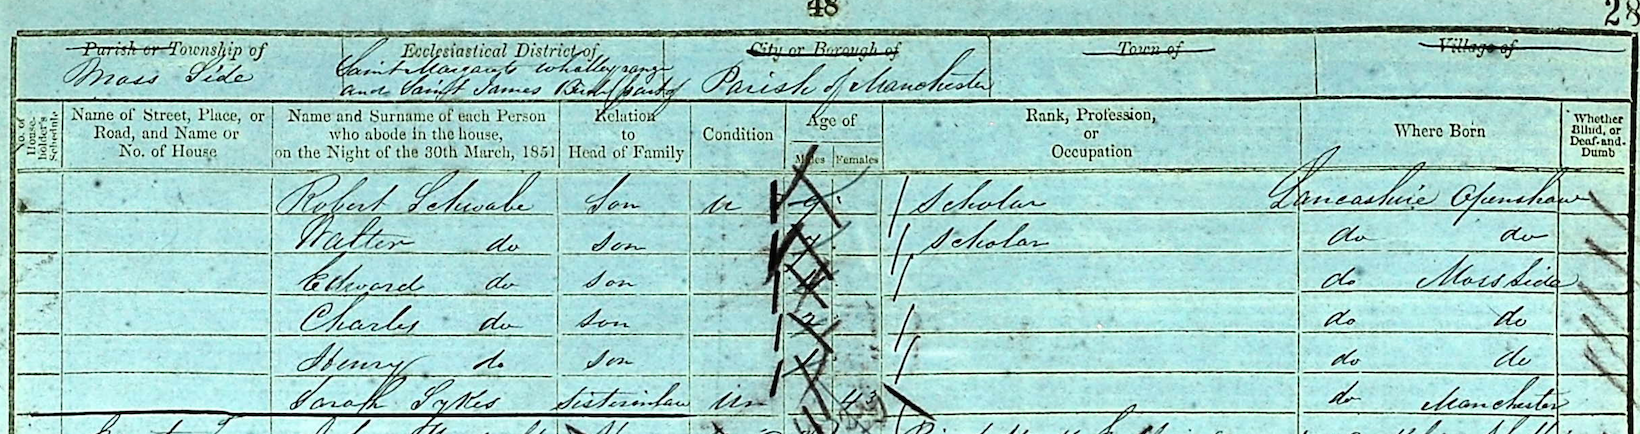 48
28
Parish or Township of Ecclesiastical District of City or Borough of Town of Village of
Moss Side Saint Margarets Whalley range Parish of Manchester
and Saint James
No. of House-holder's Schedule Name of Street, Place, or Road, and Name or No. of House Name and Surname of each Person who abode in the house, on the Night of the 30th March, 1851 Relation to Head of Family Condition Age of Males Females Rank, Profession, or Occupation Where Born Whether Blind, or Deaf-and-Dumb
Robert Schwabe Son U 9 Scholar Lancashire Openshaw
Walter do son 7 scholar do do
Edward do son do Moss Side
Charles do son 2 do do
Henry do son do do
Sarah Sykes Sisterinlaw Un 43 do Manchester